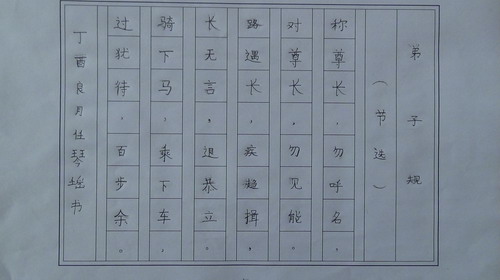 弟子规
（节选）
称尊长，勿呼名，
对尊长，勿见能。
路遇长，疾趋揖，
长无言，退恭立。
骑下马，乘下车，
过犹待，百步余。
丁酉良月任琴书